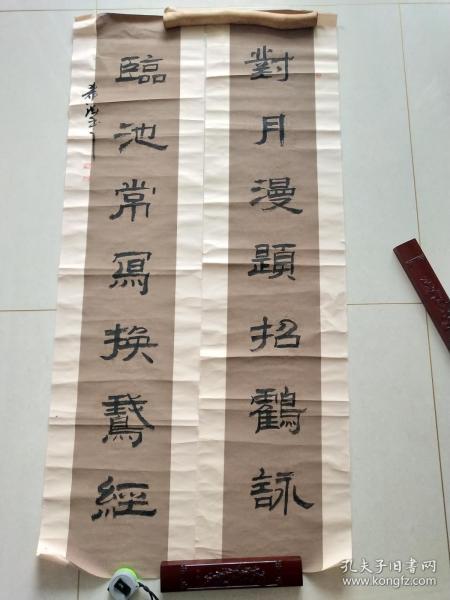 對月漫題招鶴詠
臨池常寫換鵞經
孔夫子旧书网
www.kongfz.com